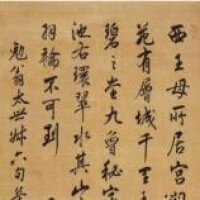 西王母所居宮闕
苑有層城千里
碧之堂九層
池右環翠水其山
羽輪不可到
勉翁太世姊六旬